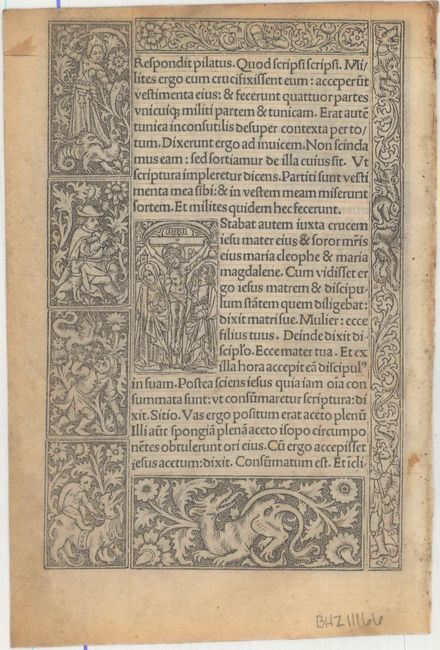 Respondit pilatus. Quod scripsi scripsi. Mi/
lites ergo cum crucifixissent eum : acceperũt
vestimenta eius: & fecerunt quattuor partes
vnicuiq; militi partem & tunicam. Erat autẽ
tunica inconsutilis desuper contexta per to/
tum. Dixerunt ergo ad inuicem. Non scinda
mus eam : sed sortiamur de illa cuius sit. Vt
scriptura impleretur dicens. Partiti sunt vesti
menta mea sibi: & in vestem meam miserunt
sortem. Et milites quidem hec fecerunt.
Stabat autem iuxta crucem
iesu mater eius & soror mr̃is
eius maria cleophe & maria
magdalene. Cum vidisset er
go iesus matrem & discipu/
lum stãtem quem diligebat:
dixit matri sue. Mulier : ecce
filius tuus. Deinde dixit di
scipl̃o. Ecce mater tua. Et ex
illa hora accepit eã discipulꝰ
in suam. Postea sciens iesus quia iam oĩa con
summata sunt: vt consũmaretur scriptura: di
xit. Sitio. Vas ergo positum erat aceto plenũ
Illi aũt spongiã plenã aceto isopo circumpo
nẽtes obtulerunt ori eius. Cũ ergo accepisset
iesus acetum: dixit. Consũmatum est. Et icli
BHZ11166